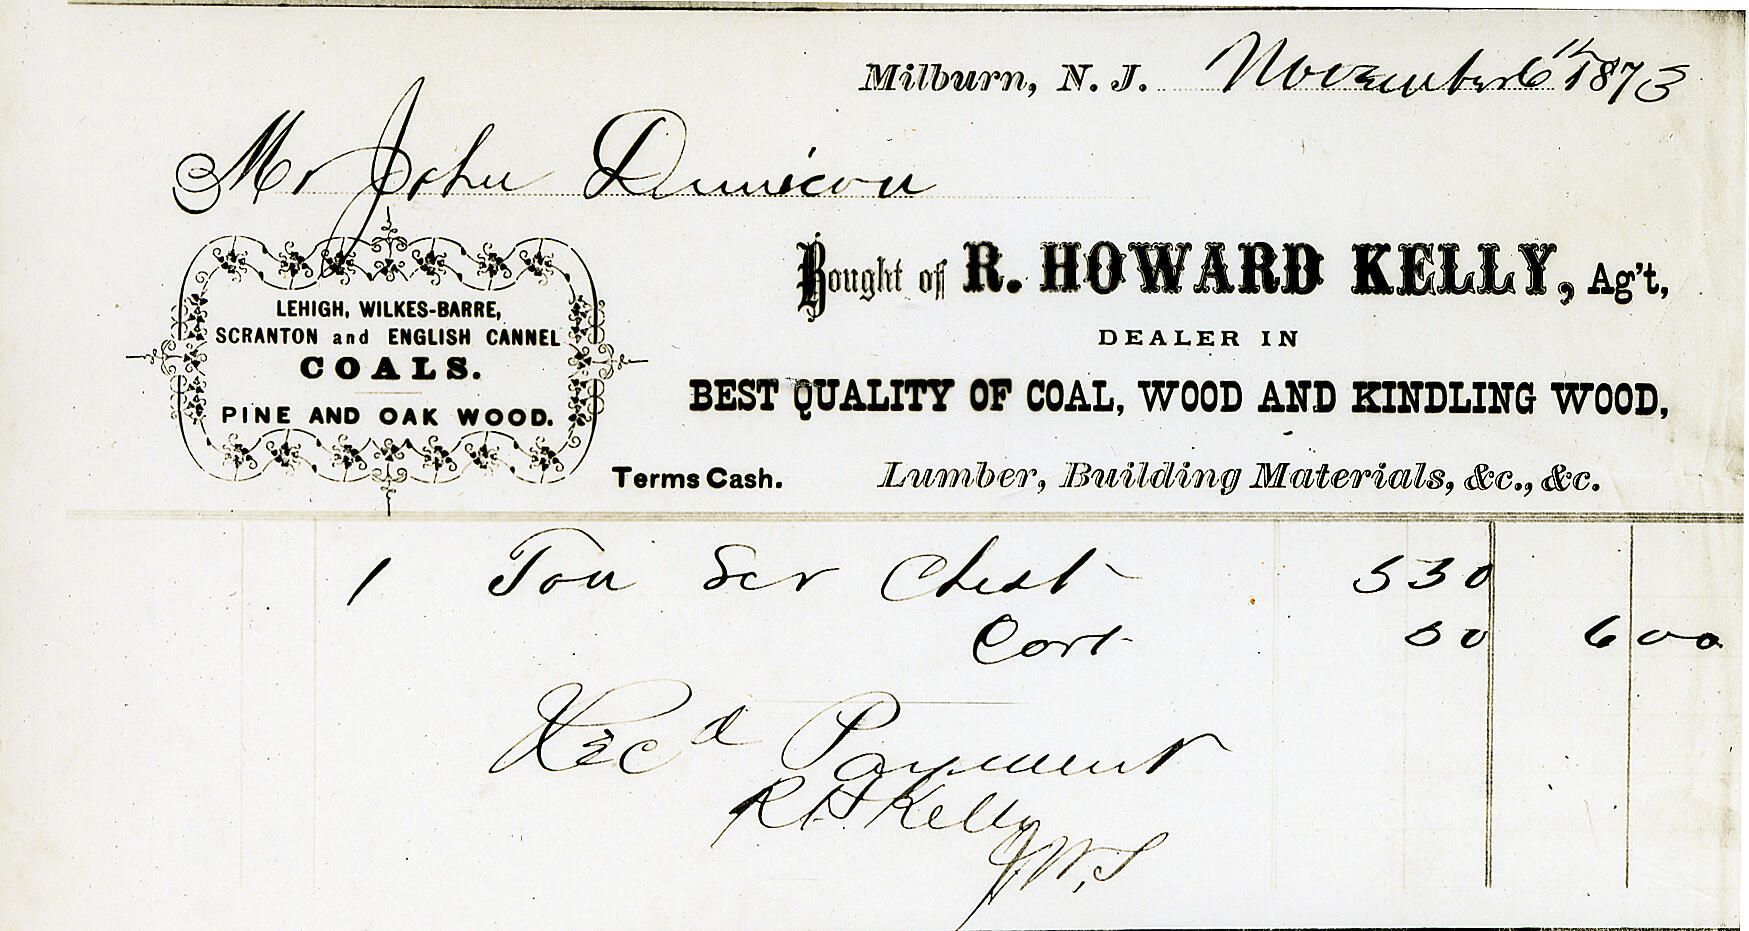 Milburn, N. J. November 6th 1873
Mr John Dunican
LEHIGH, WILKES-BARRE,
SCRANTON and ENGLISH CANNEL
COALS.
PINE AND OAK WOOD.
Bought of R. HOWARD KELLY, Ag't,
DEALER IN
BEST QUALITY OF COAL, WOOD AND KINDLING WOOD,
Terms Cash. Lumber, Building Materials, &c., &c.
1 Ton Scr Chest 550
Cart 50 600
Rec'd Payment
R H Kelly
J.W.S